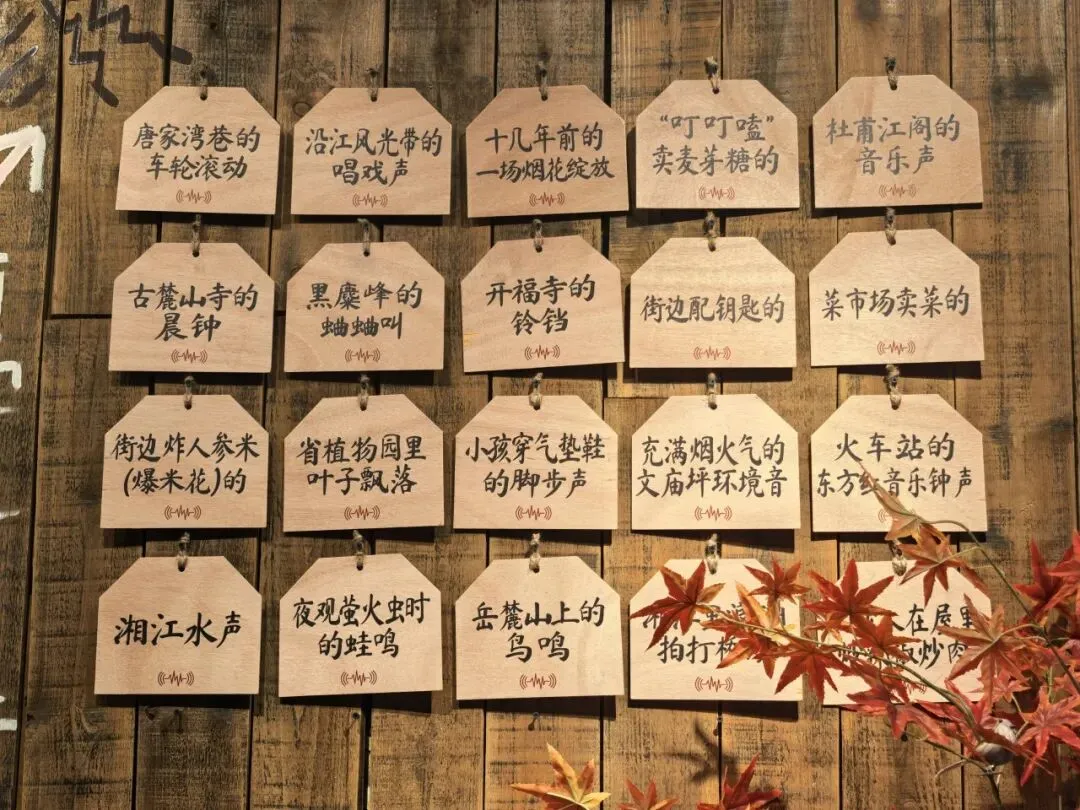 唐家湾巷的
车轮滚动
沿江风光带的
唱戏声
十几年前的
一场烟花绽放
“叮叮嗑”
卖麦芽糖的
杜甫江阁的
音乐声
古麓山寺的
晨钟
黑麋峰的
蛐蛐叫
开福寺的
铃铛
街边配钥匙的
菜市场卖菜的
街边炸人参米
(爆米花)的
省植物园里
叶子飘落
小孩穿气垫鞋
的脚步声
充满烟火气的
文庙坪环境音
火车站的
东方红音乐钟声
湘江水声
夜观萤火虫时
的蛙鸣
岳麓山上的
鸟鸣
拍打
在屋里
炒肉